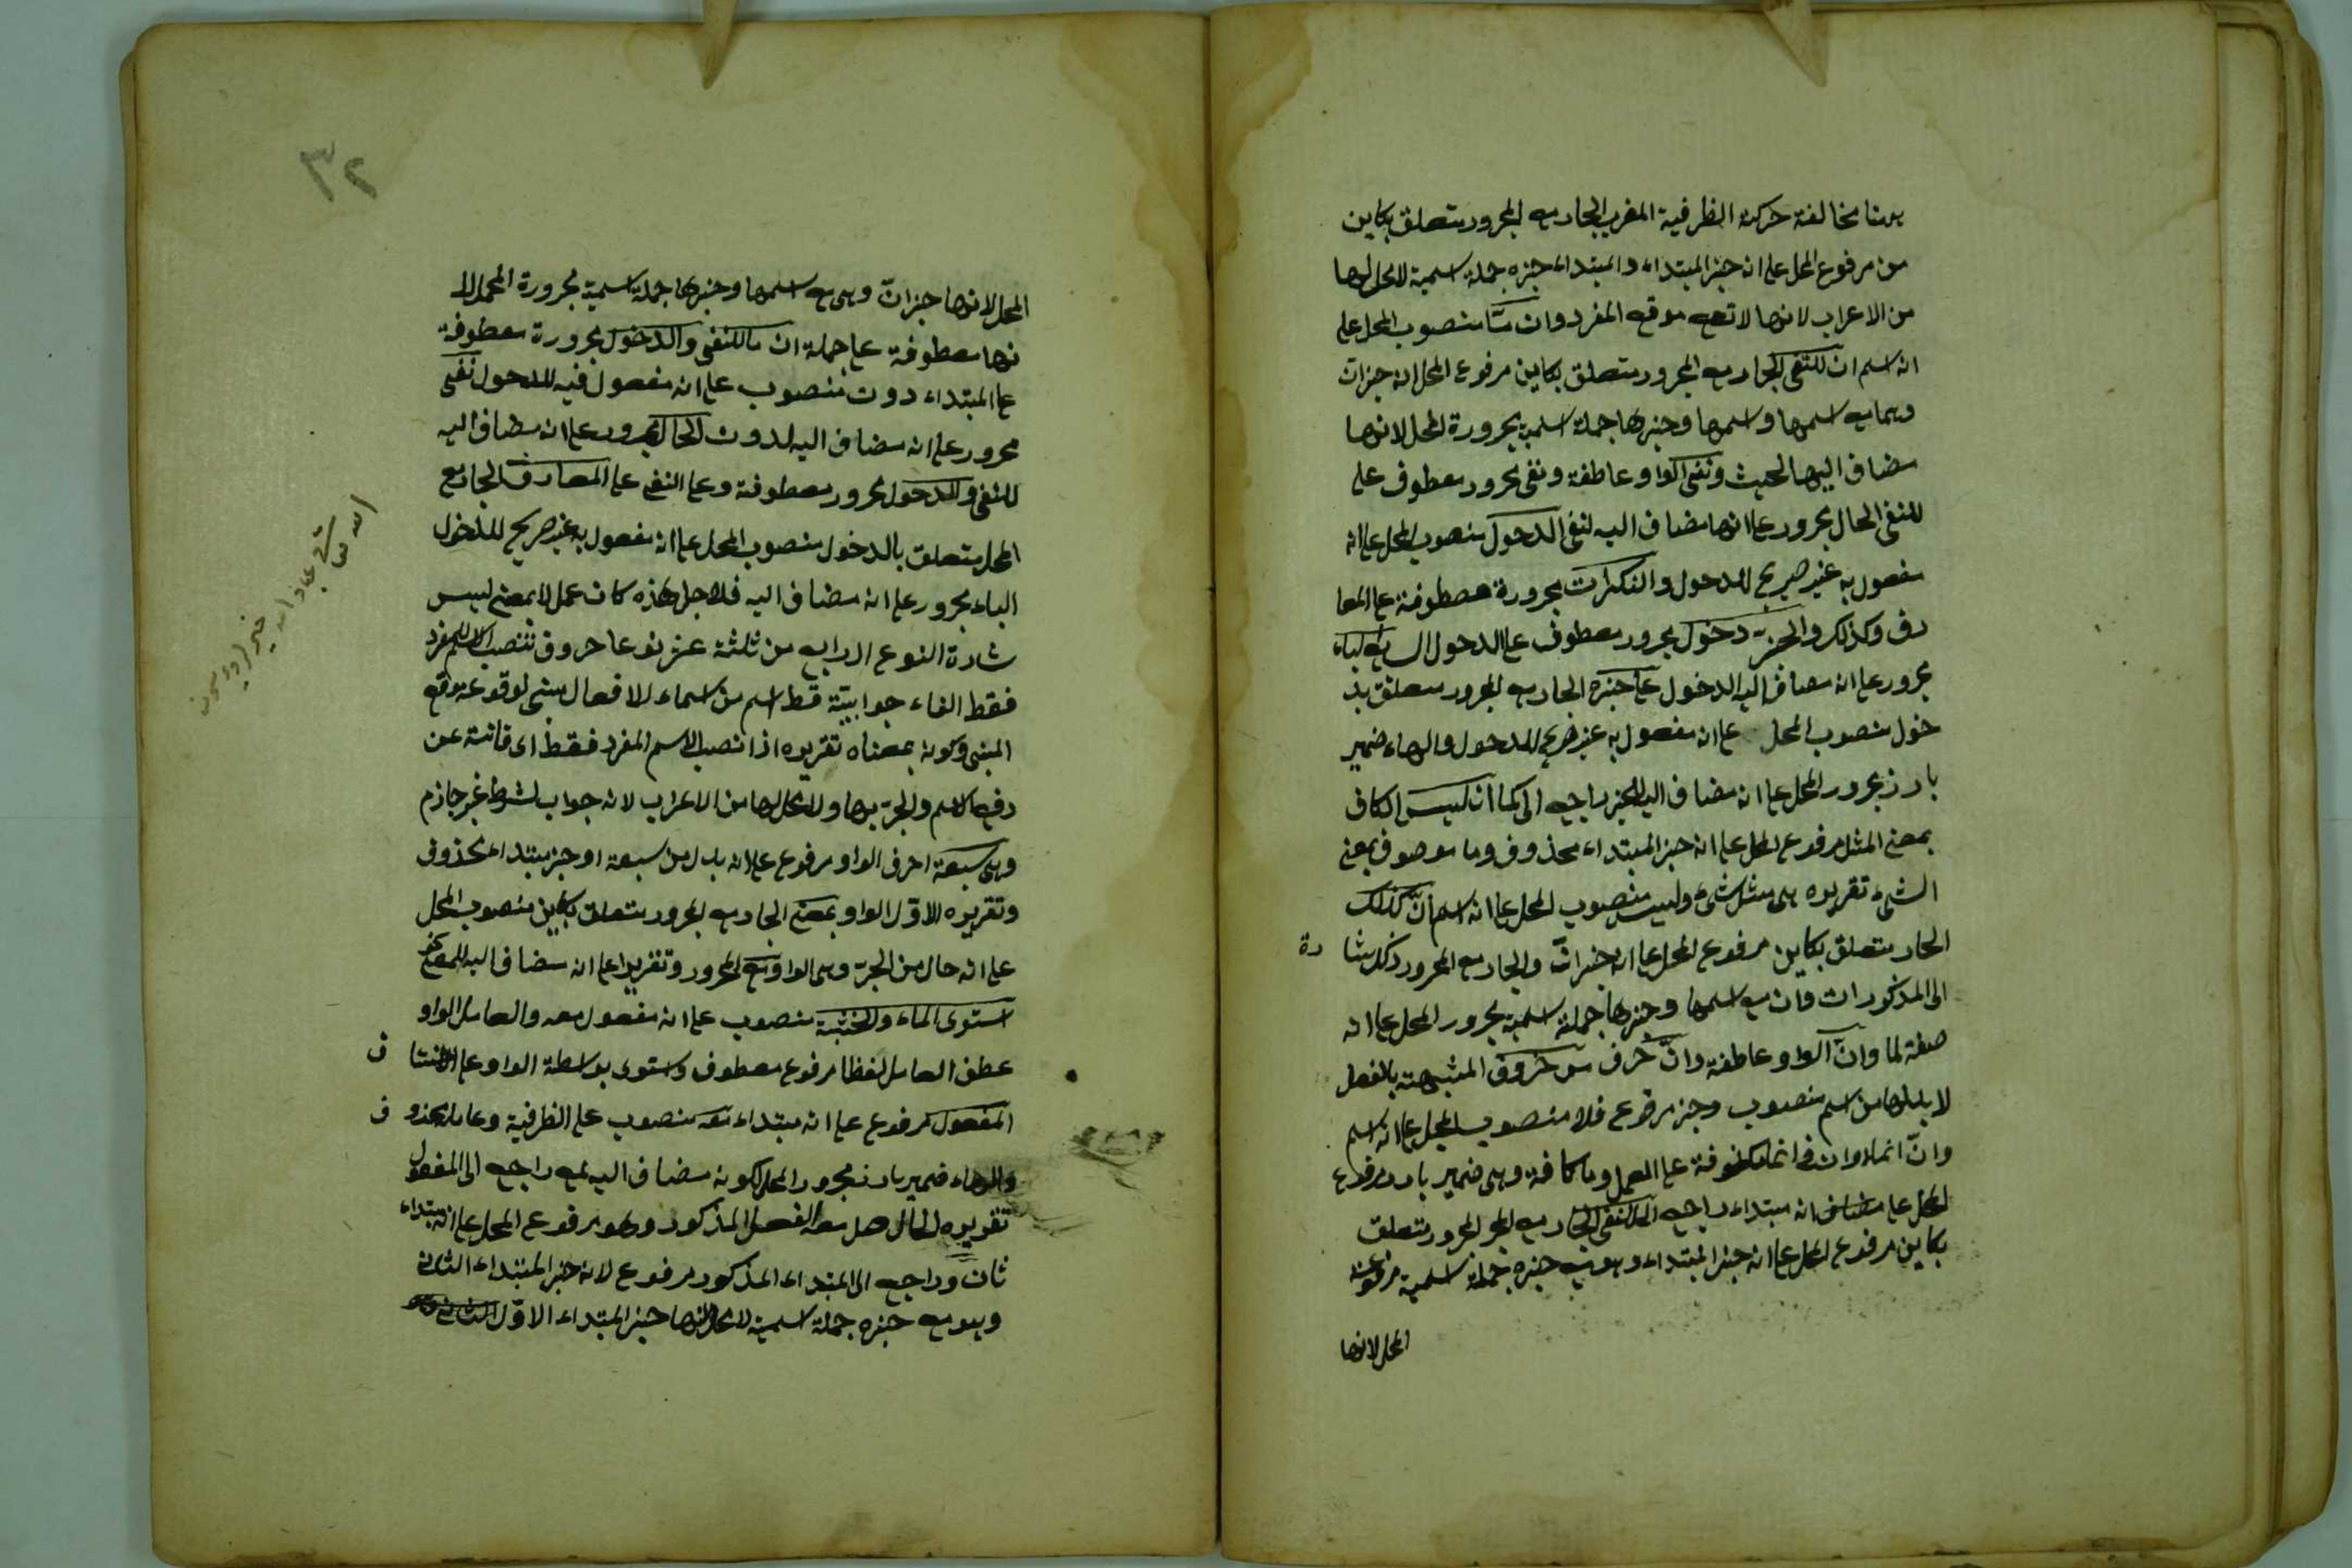 بمنا مخالفة حركة الظرفية المغرب الجار مع المجرور متعلق بكاين
من مرفوع المحل على انه خبر المبتداء والمبتداء خبره جملة اسمية لا محل لها
من الاعراب لانها لا تقع موقع المفرد وان منصوب المحل على
انه اسم ان للنفى الجار مع المجرور متعلق بكاين مرفوع المحل انه خبر ان
وهما مع اسمها واسمها وخبرها جملة اسمية مجرورة المحل لانها
مضاف اليها لحيث ونفى الواو عاطفة ونفى مجرور معطوف على
للنفى الحال مجرور على انها مضاف اليه لنفى الدخول منصوب المحل على انه
مفعول به غير صريح للدخول والنكرات مجرورة معطوفة على المعا
رف وكذلك والخبر دخول مجرور معطوف على الدخول السابق الباء
مجرور على انه مضاف اليه الدخول على خبره الجار مع المجرور متعلق بد
خول منصوب المحل على انه مفعول به غير صريح للدخول والهاء ضمير
بارز مجرور المحل على انه مضاف اليه للخبر راجع الى كما ان ليس الكاف
بمعنى المثل مرفوع المحل على انه خبر المبتداء محذوف وما موصوف بمعنى
الشئ تقريره هى مثل شئ وليس منصوب المحل على انه اسم ان كذلك
الجار متعلق بكاين مرفوع المحل على انه خبر ان والجار مع المجرور ذلك شا رة
الى المذكور ان فان مع اسمها وخبرها جملة اسمية مجرور المحل على انه
صفة لما وان الواو عاطفة وان حرف من حروف المشبهة بالفعل
لا بد لها من اسم منصوب وخبر مرفوع فلا منصوب المحل على انه اسم
وان انما وان فى انما مكفوفة على العمل وما كافة وهى ضمير بارز مرفوع
المحل على انه مبتداء راجع الى النفى الجار مع المجرور متعلق
بكاين مرفوع المحل على انه خبر المبتداء وهو مع خبره جملة اسمية مرفوعة
المحل لانها
٣٢
المحل لانها خبر ان وهى مع اسمها وخبرها جملة اسمية مجرورة المحل لا
نها معطوفة على جملة ان ما للنفى والدخول مجرورة معطوفة
على المبتداء دون منصوب على انه مفعول فيه للدخول نفى
مجرور على انه مضاف اليه لدون الحال مجرور على انه مضاف اليه
للنفى والدخول مجرور معطوفة وعلى النفى على المعارف الجار مع
المحل متعلق بالدخول منصوب المحل على انه مفعول به غير صريح للدخول
الباء مجرور على انه مضاف اليه فلاجل هذه كان عمل لا بمعنى ليس
شادة النوع الرابع من ثلثة عشر نوعا حروف تنصب الاسم المفرد
فقط الفاء جوابية قط اسم من اسماء الافعال مبنى لوقوعه موقع
المبنى وكونه بمعناه تقريره اذا نصب الاسم المفرد فقط اى فانته عن
رفع الاسم والجر بها ولا محل لها من الاعراب لانه جواب لشرط غير جازم
وهى سبعة احرف الواو مرفوع على انه بدل من سبعة او خبر مبتداء محذوف
وتقريره الاول الواو بمعنى الجار مع المجرور متعلق بكاين منصوب المحل
على انه حال من الخبر وهى الواو مع المجرور وتقريرا على انه مضاف اليه للمعنى نحو
استوى الماء والخشبة منصوب على انه مفعول معه والعامل الواو
عطف العامل لفظا مرفوع معطوف واستوى بواسطة الواو على
المفعول مرفوع على انه مبتداء معه منصوب على الظرفية وعامله محذو ف
والهاء ضمير بارز مجرور المحل لكونه مضاف اليه لمع راجع الى المفعول
تقريره الحاصل معه الفعل المذكور وهو مرفوع المحل على انه مبتداء
ثان وراجع الى المبتداء المذكور مرفوع لانه خبر المبتداء الثانى
وهو مع خبره جملة اسمية لا محل لها خبر المبتداء الاول